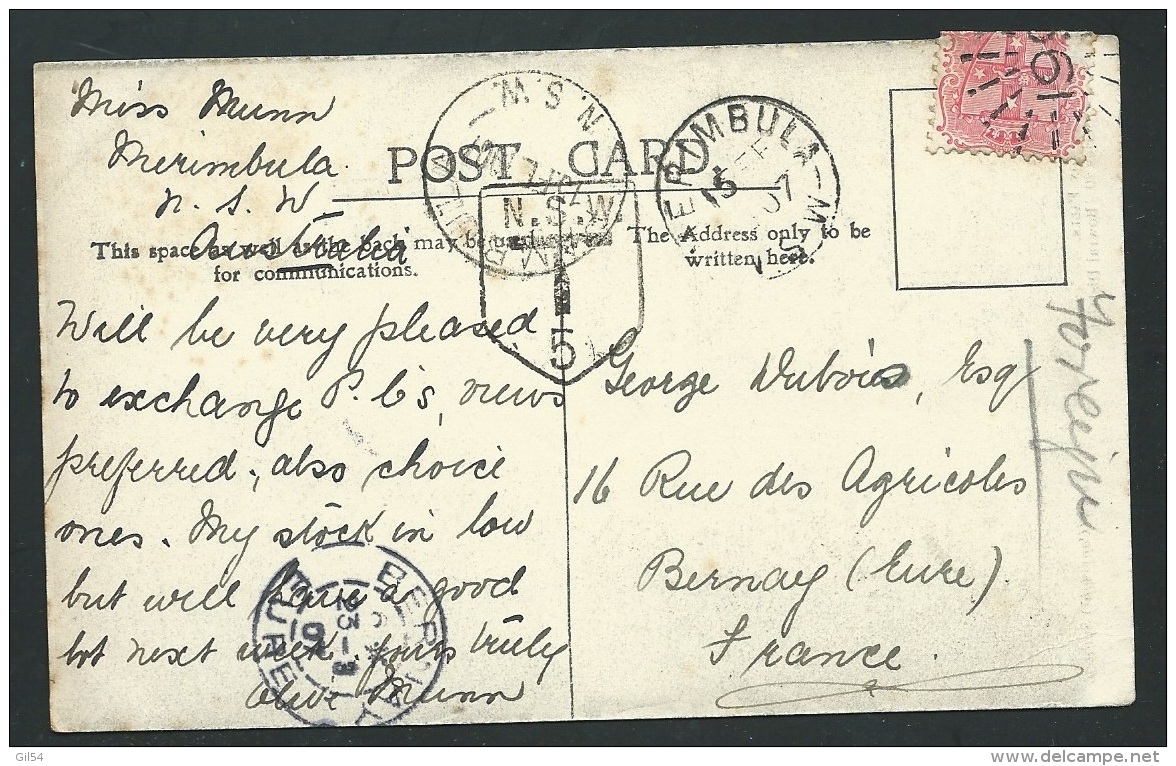 Miss Munn
Merimbula.
N. S. W
Australia
POST CARD
This space as well as the back may be used
for communications.
The Address only to be
written here.
Will be very pleased
to exchange P. C's, views
preferred, also choice
ones. My stock in low
but will have a good
lot next week. Yours truly
Olive Munn
George Dubois, Esq
16 Rue des Agricoles
Bernay (Eure).
France.
Foreign
N.S.W.
N.S.W.
5
07
BERNAY
EURE
23-3
Gil54
delcampe.net